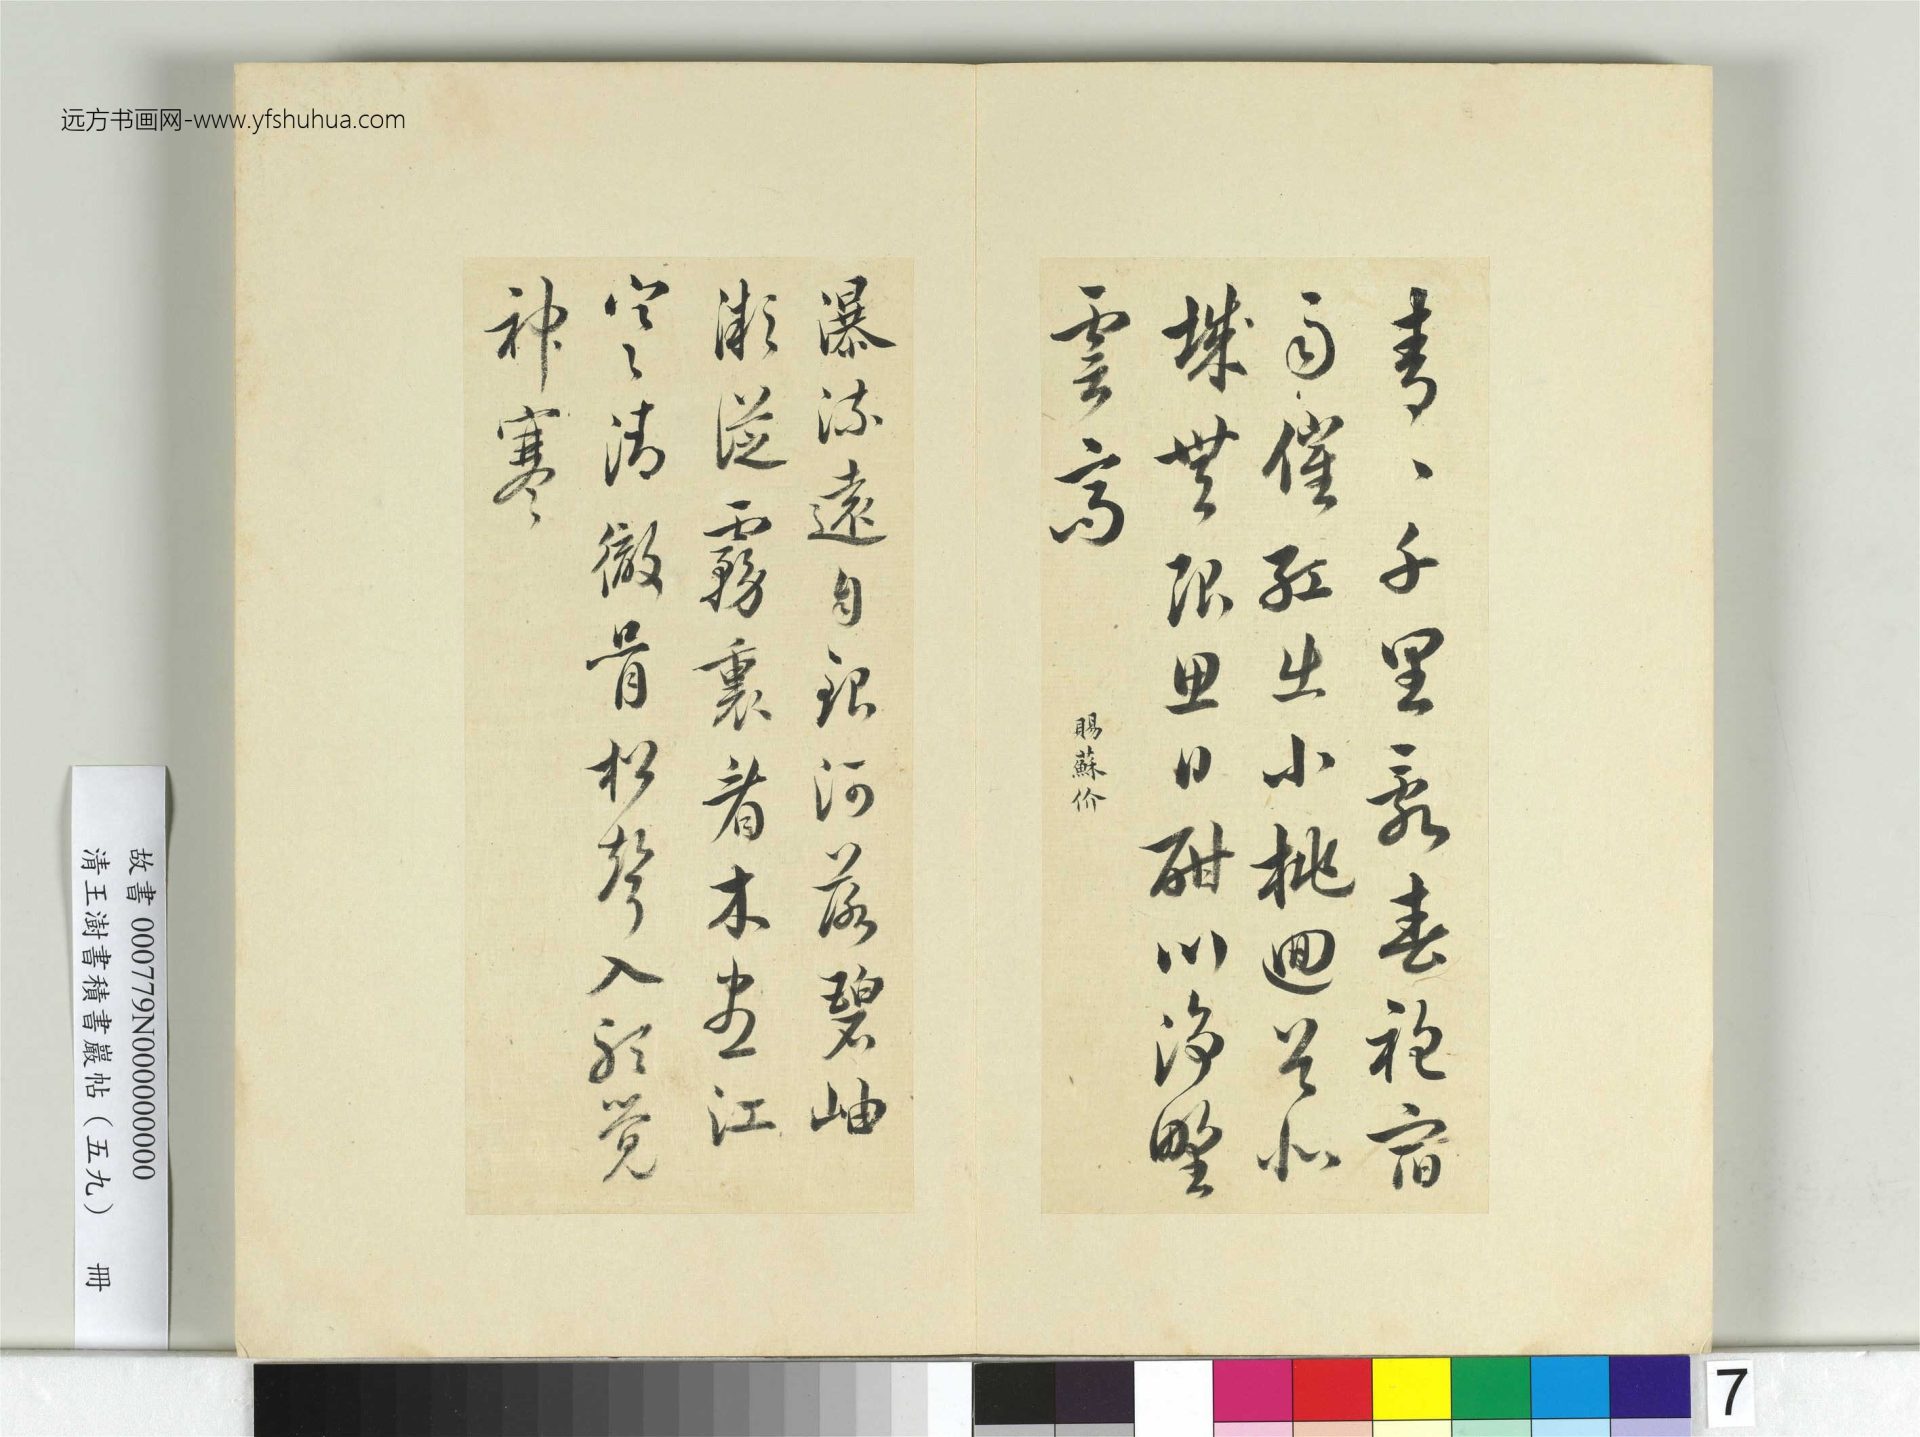 远方书画网-www.yfshuhua.com
青、千里亂春袍宿
雨催紅出小桃迴首北
城無限思日酣川淨野
雲高
賜蘇价
瀑流遠自銀河落碧岫
漸從霧裏看木盡江
空清徹骨松聲入聽覺
神寒
故書 000779N000000000
清王澍書積書巖帖（五九） 冊
7